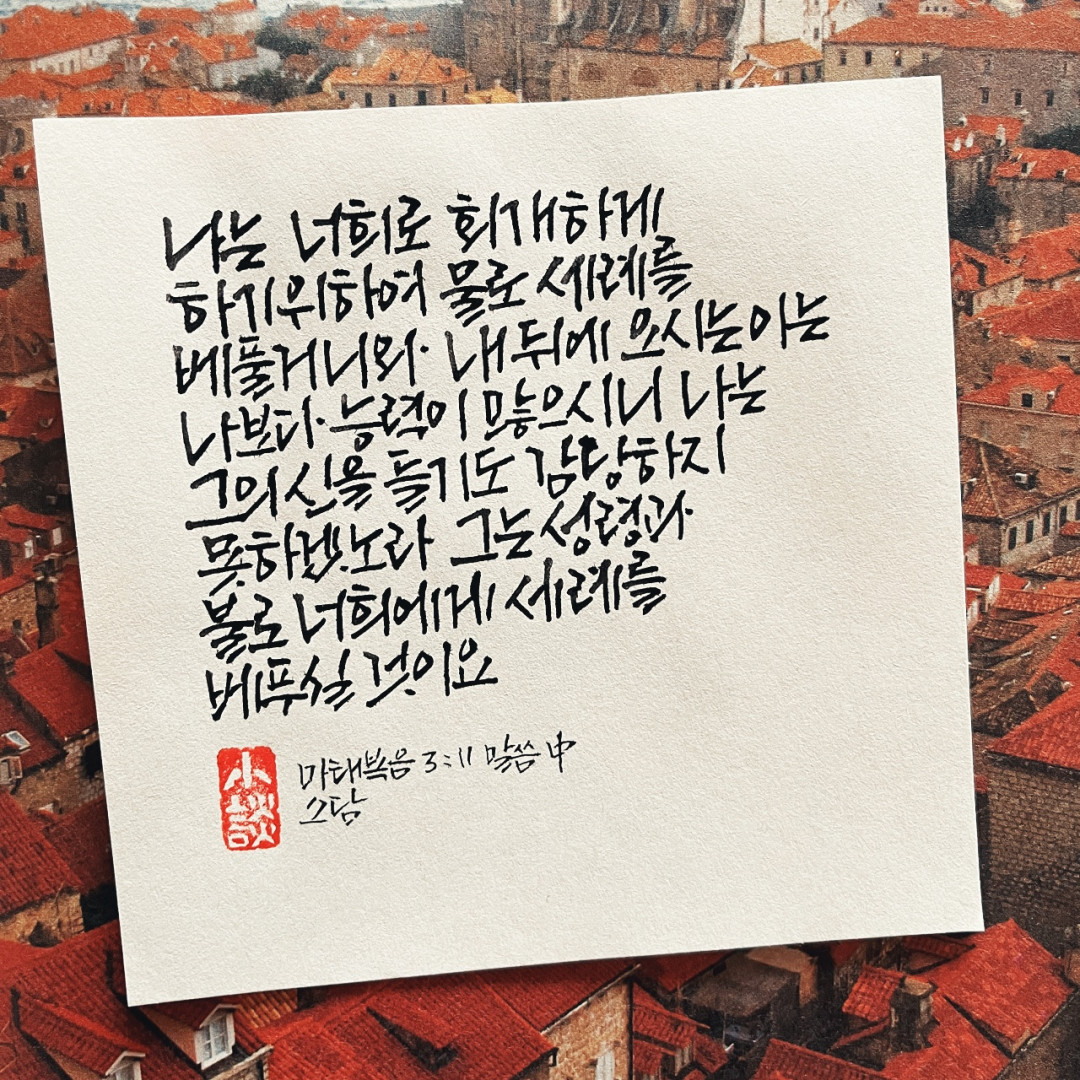 나는 너희로 회개하게
하기위하여 물로 세례를
베풀거니와 내 뒤에 오시는이는
나보다 능력이 많으시니 나는
그의 신을 들기도 감당하지
못하겠노라 그는 성령과
불로 너희에게 세례를
베푸실 것이요
마태복음 3:11 말씀 中
소담
小談